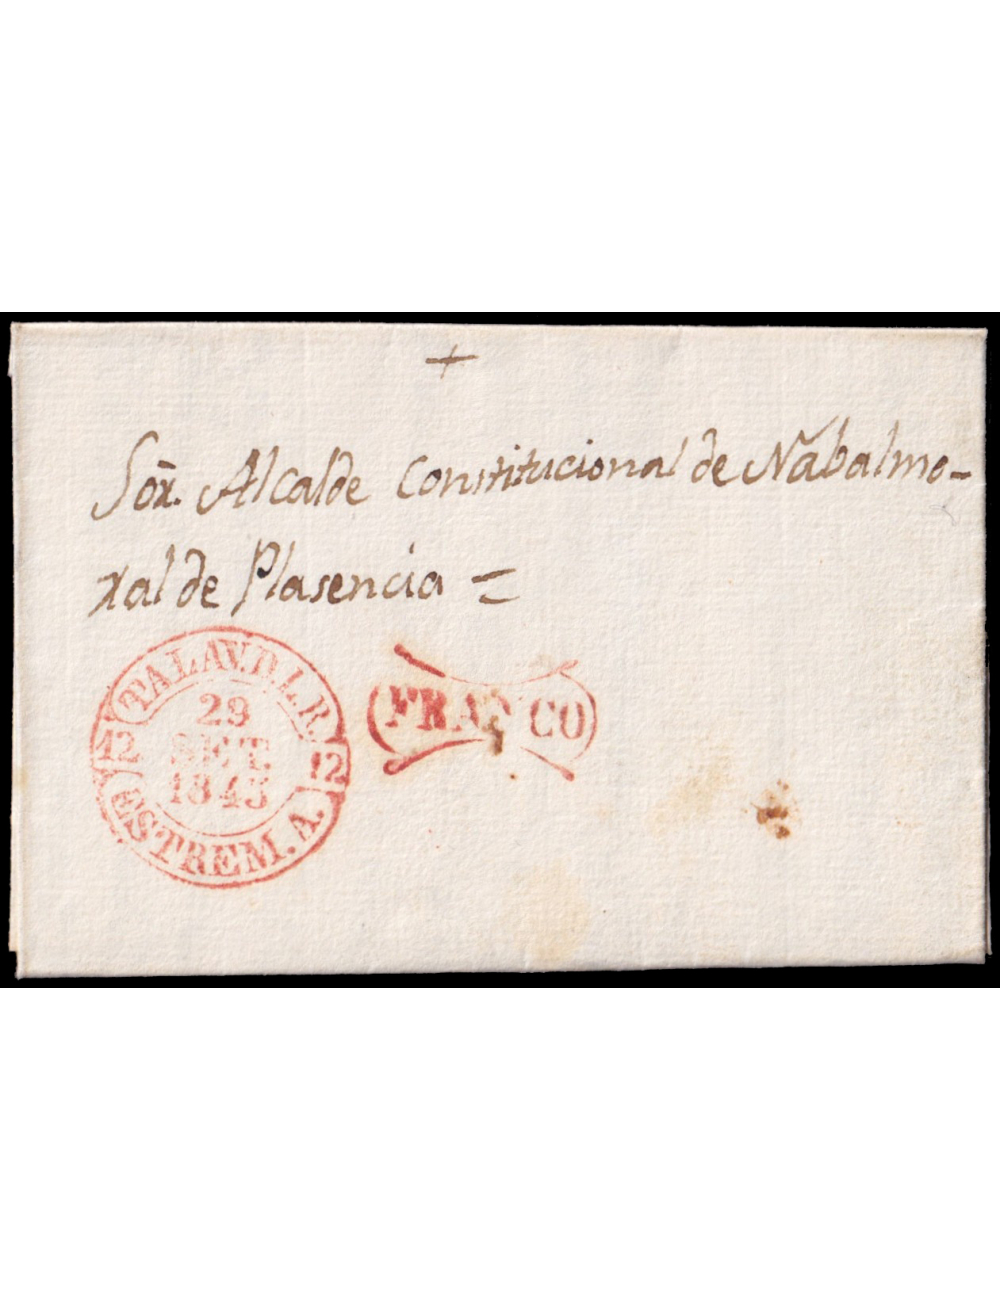 +
Sōr. Alcalde Constitucional de Nabalmo-
ral de Plasencia =
TALAV. D. L. R.
12 29 12
SET.
1843
ESTREM. A.
FRANCO